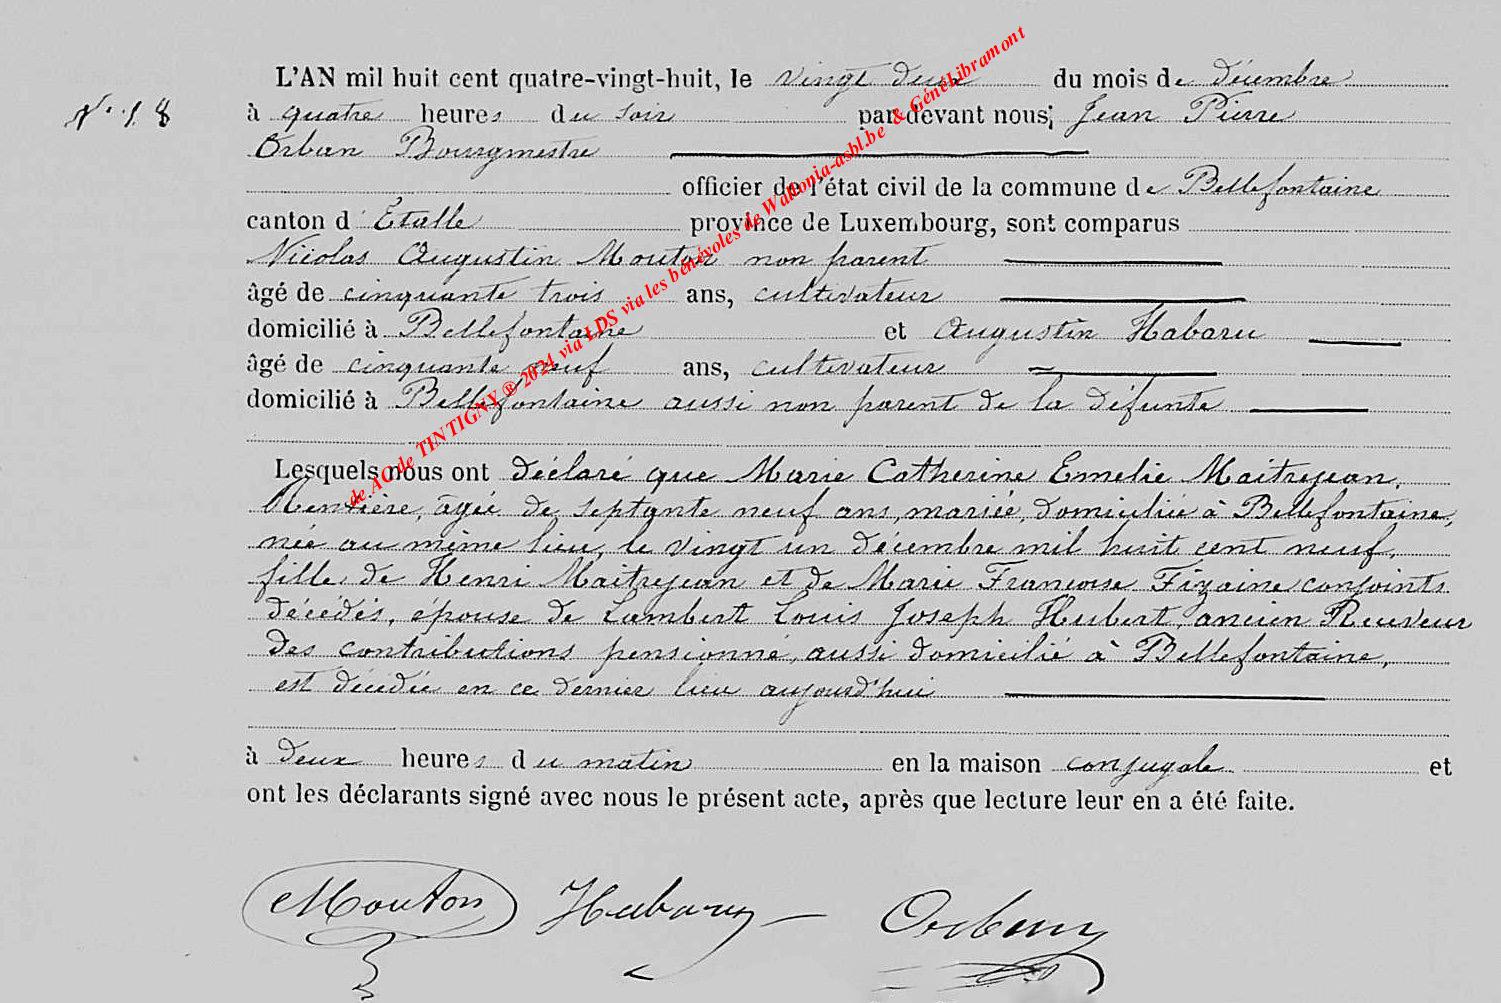 L'AN mil huit cent quatre-vingt-huit, le vingt deux du mois de décembre
N° 18 à quatre heures du soir par devant nous; Jean Pierre
Orban Bourgmestre
officier de l'état civil de la commune de Bellefontaine
canton d'Etalle province de Luxembourg, sont comparus
Nicolas Augustin Mouton non parent
âgé de cinquante trois ans, cultivateur
domicilié à Bellefontaine et Augustin Habaru
âgé de cinquante neuf ans, cultivateur
domicilié à Bellefontaine aussi non parent de la défunte
Lesquels nous ont déclaré que Marie Catherine Emelie Maitrejean,
Rentière, âgée de septante neuf ans, mariée, domiciliée à Bellefontaine,
née au même lieu, le vingt un décembre mil huit cent neuf,
fille de Henri Maitrejean et de Marie Francoise Fizaine conjoints
décédés, épouse de Lambert Louis Joseph Hubert, ancien Receveur
des contributions pensionné, aussi domicilié à Bellefontaine,
est décédée en ce dernier lieu aujourd'hui
à deux heures du matin en la maison conjugale et
ont les déclarants signé avec nous le présent acte, après que lecture leur en a été faite.
Mouton Habaru Orban
de AC de TINTIGNY ® 2024 via LDS via les bénévoles de Wallonia-asbl.be & GénéLibramont